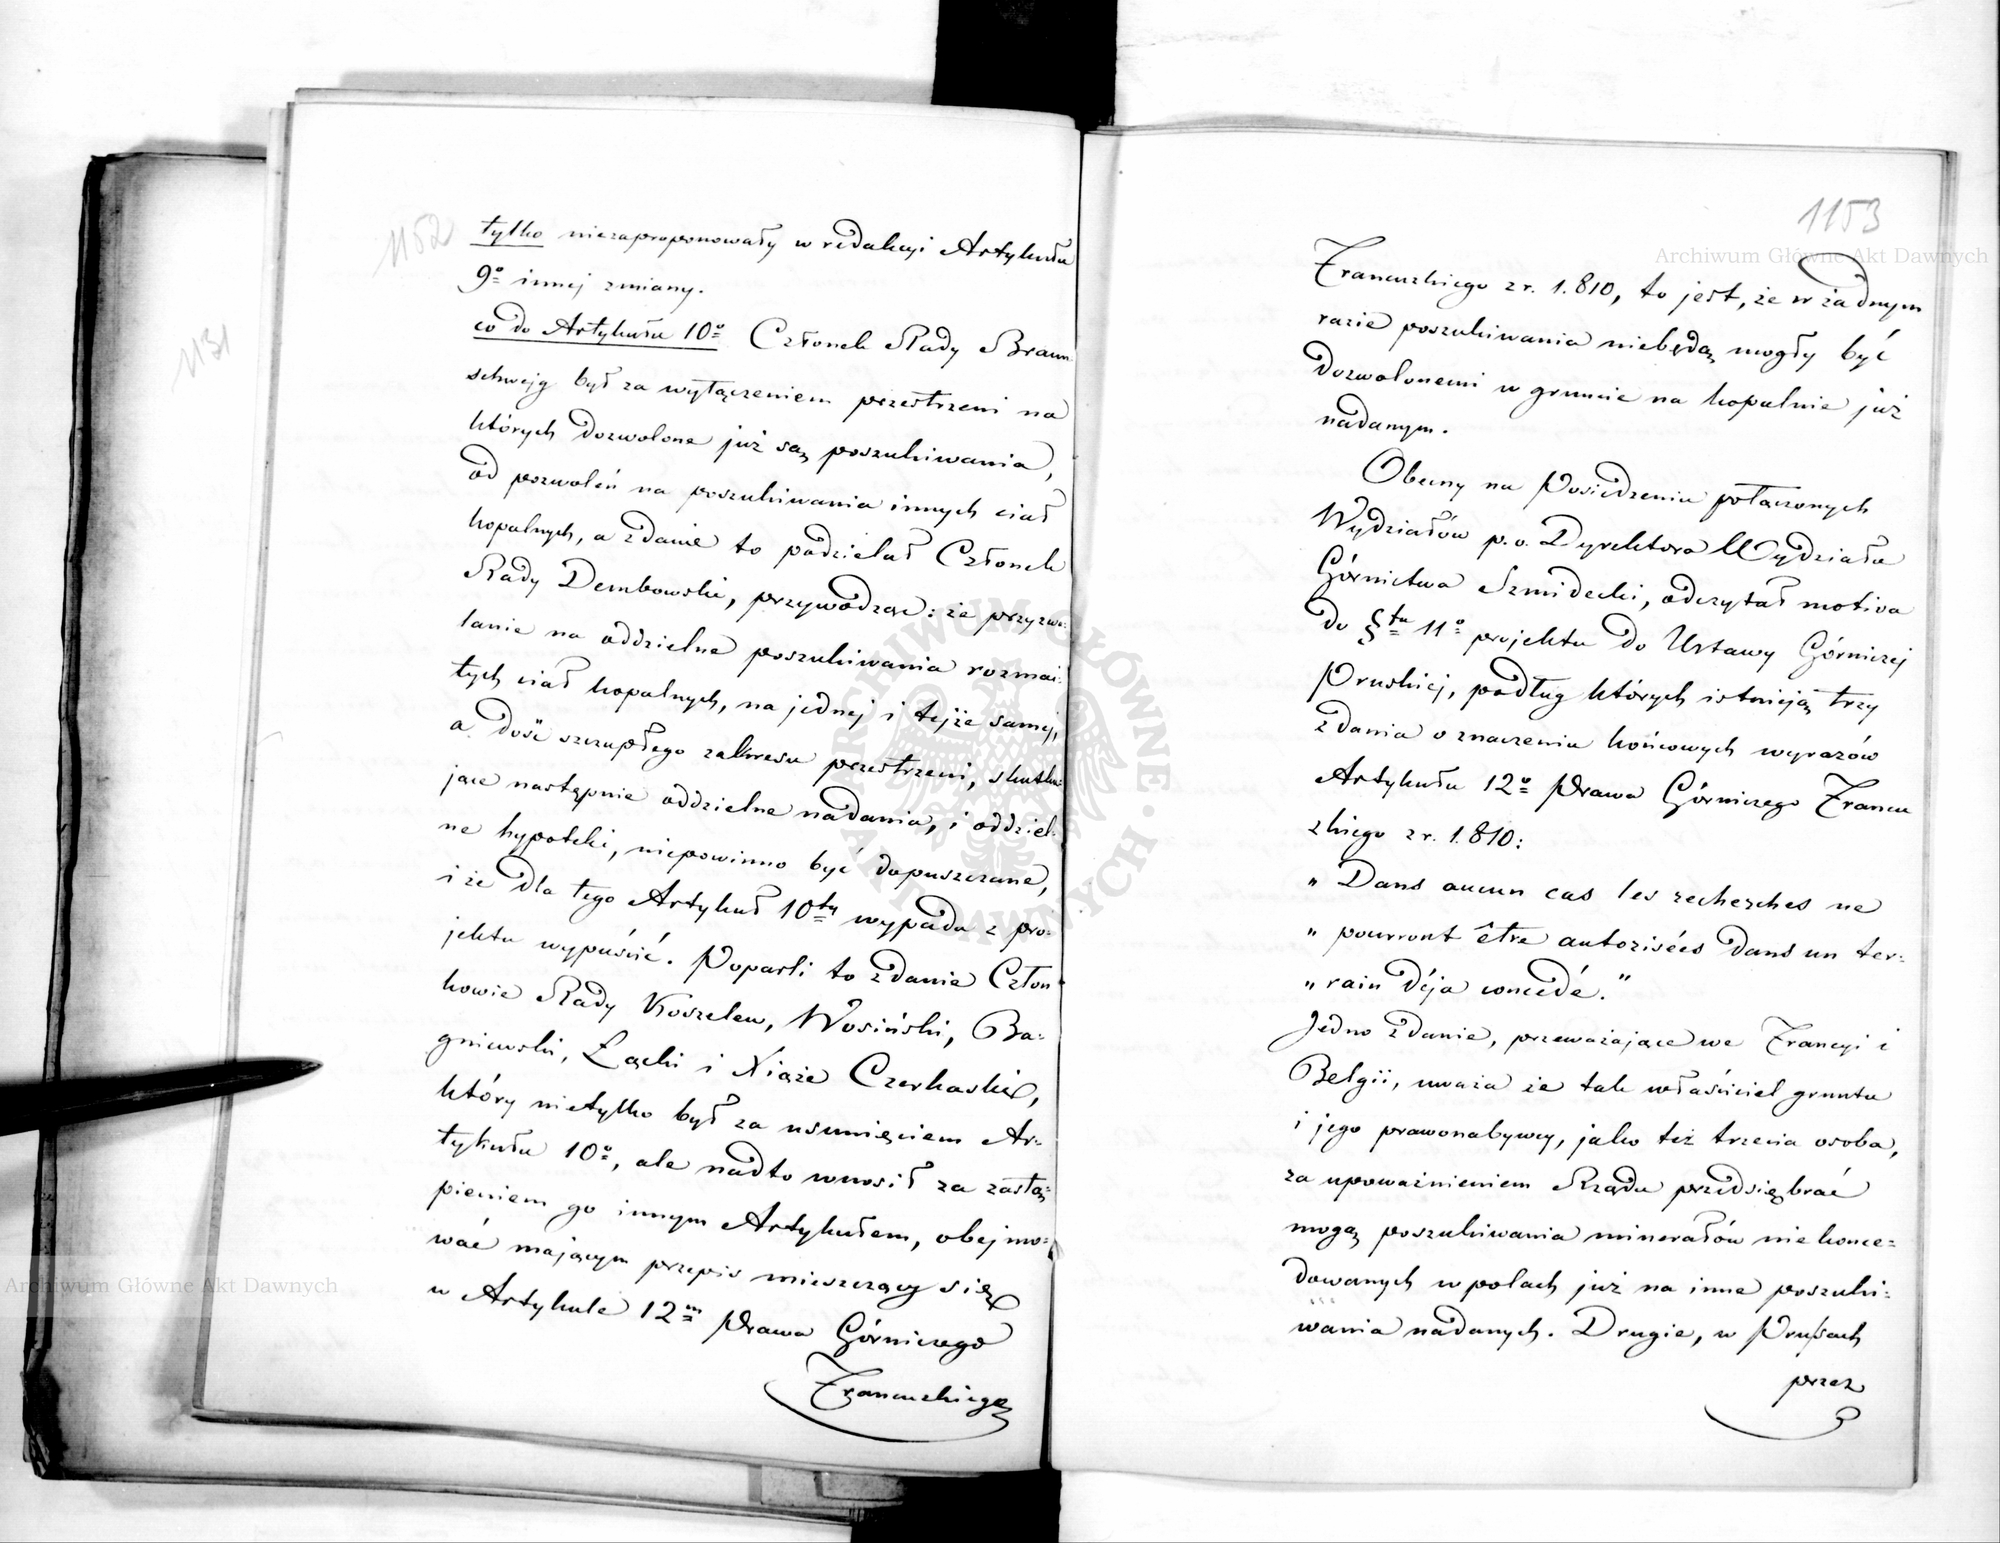 1131
1152
tylko niezaproponowały w redakcyi Artykułu
9º innej zmiany.
co do Artykułu 10º Członek Rady Braun
schwejg był za wyłączeniem przestrzeni na
których dozwolone już są poszukiwania,
od pozwoleń na poszukiwania innych ciał
kopalnych, a zdanie to podzielał Członek
Rady Dembowski, przywodząc: że przyzwo-
lanie na oddzielne poszukiwania rozmai-
tych ciał kopalnych, na jednej i tejże samej,
a dość szczupłego zakresu przestrzeni, skutku-
jące następnie oddzielne nadania, i oddziel-
ne hypoteki, niepowinno być dopuszczane,
i że dla tego Artykuł 10ty wypada z pro-
jektu wypuścić. Poparli to zdanie Człon
kowie Rady Koszelew, Wosiński, Ba-
gniewski, Łącki i Xiąże Czerkaski,
który nietylko był za usunięciem Ar-
tykułu 10º, ale nadto wnosił za zastą-
pieniem go innym Artykułem, obejmo-
wać mającym przepis mieszczący się
w Artykule 12m Prawa Górniczego
Francuzkiego
1153
Francuzkiego z r. 1.810, to jest, że w żadnym
razie poszukiwania niebędą mogły być
dozwolonemi w gruncie na kopalnie już
nadanym.
Obecny na Posiedzeniu połączonych
Wydziałów p. o. Dyrektora Wydziału
Górnictwa Szmidecki, odczytał motiva
do §tu 11º projektu do Ustawy Górniczej
Pruskiej, podług których istnieją trzy
zdania o znaczeniu końcowych wyrazów
Artykułu 12º Prawa Górniczego Francu
zkiego z r. 1.810:
„ Dans aucun cas les recherches ne
„ pourront être autorisées dans un ter-
„ rain déja concédé."
Jedno zdanie, przeważające we Francyi i
Belgii, uważa że tak właściciel gruntu
i jego prawonabywcy, jako też trzecia osoba,
za upoważnieniem Rządu przedsiębrać
mogą poszukiwania minerałów nie konce-
dowanych w polach już na inne poszuki-
wania nadanych. Drugie, w Prusach
przez
Archiwum Główne Akt Dawnych
Archiwum Główne Akt Dawnych
ARCHIWUM GŁÓWNE AKT DAWNYCH